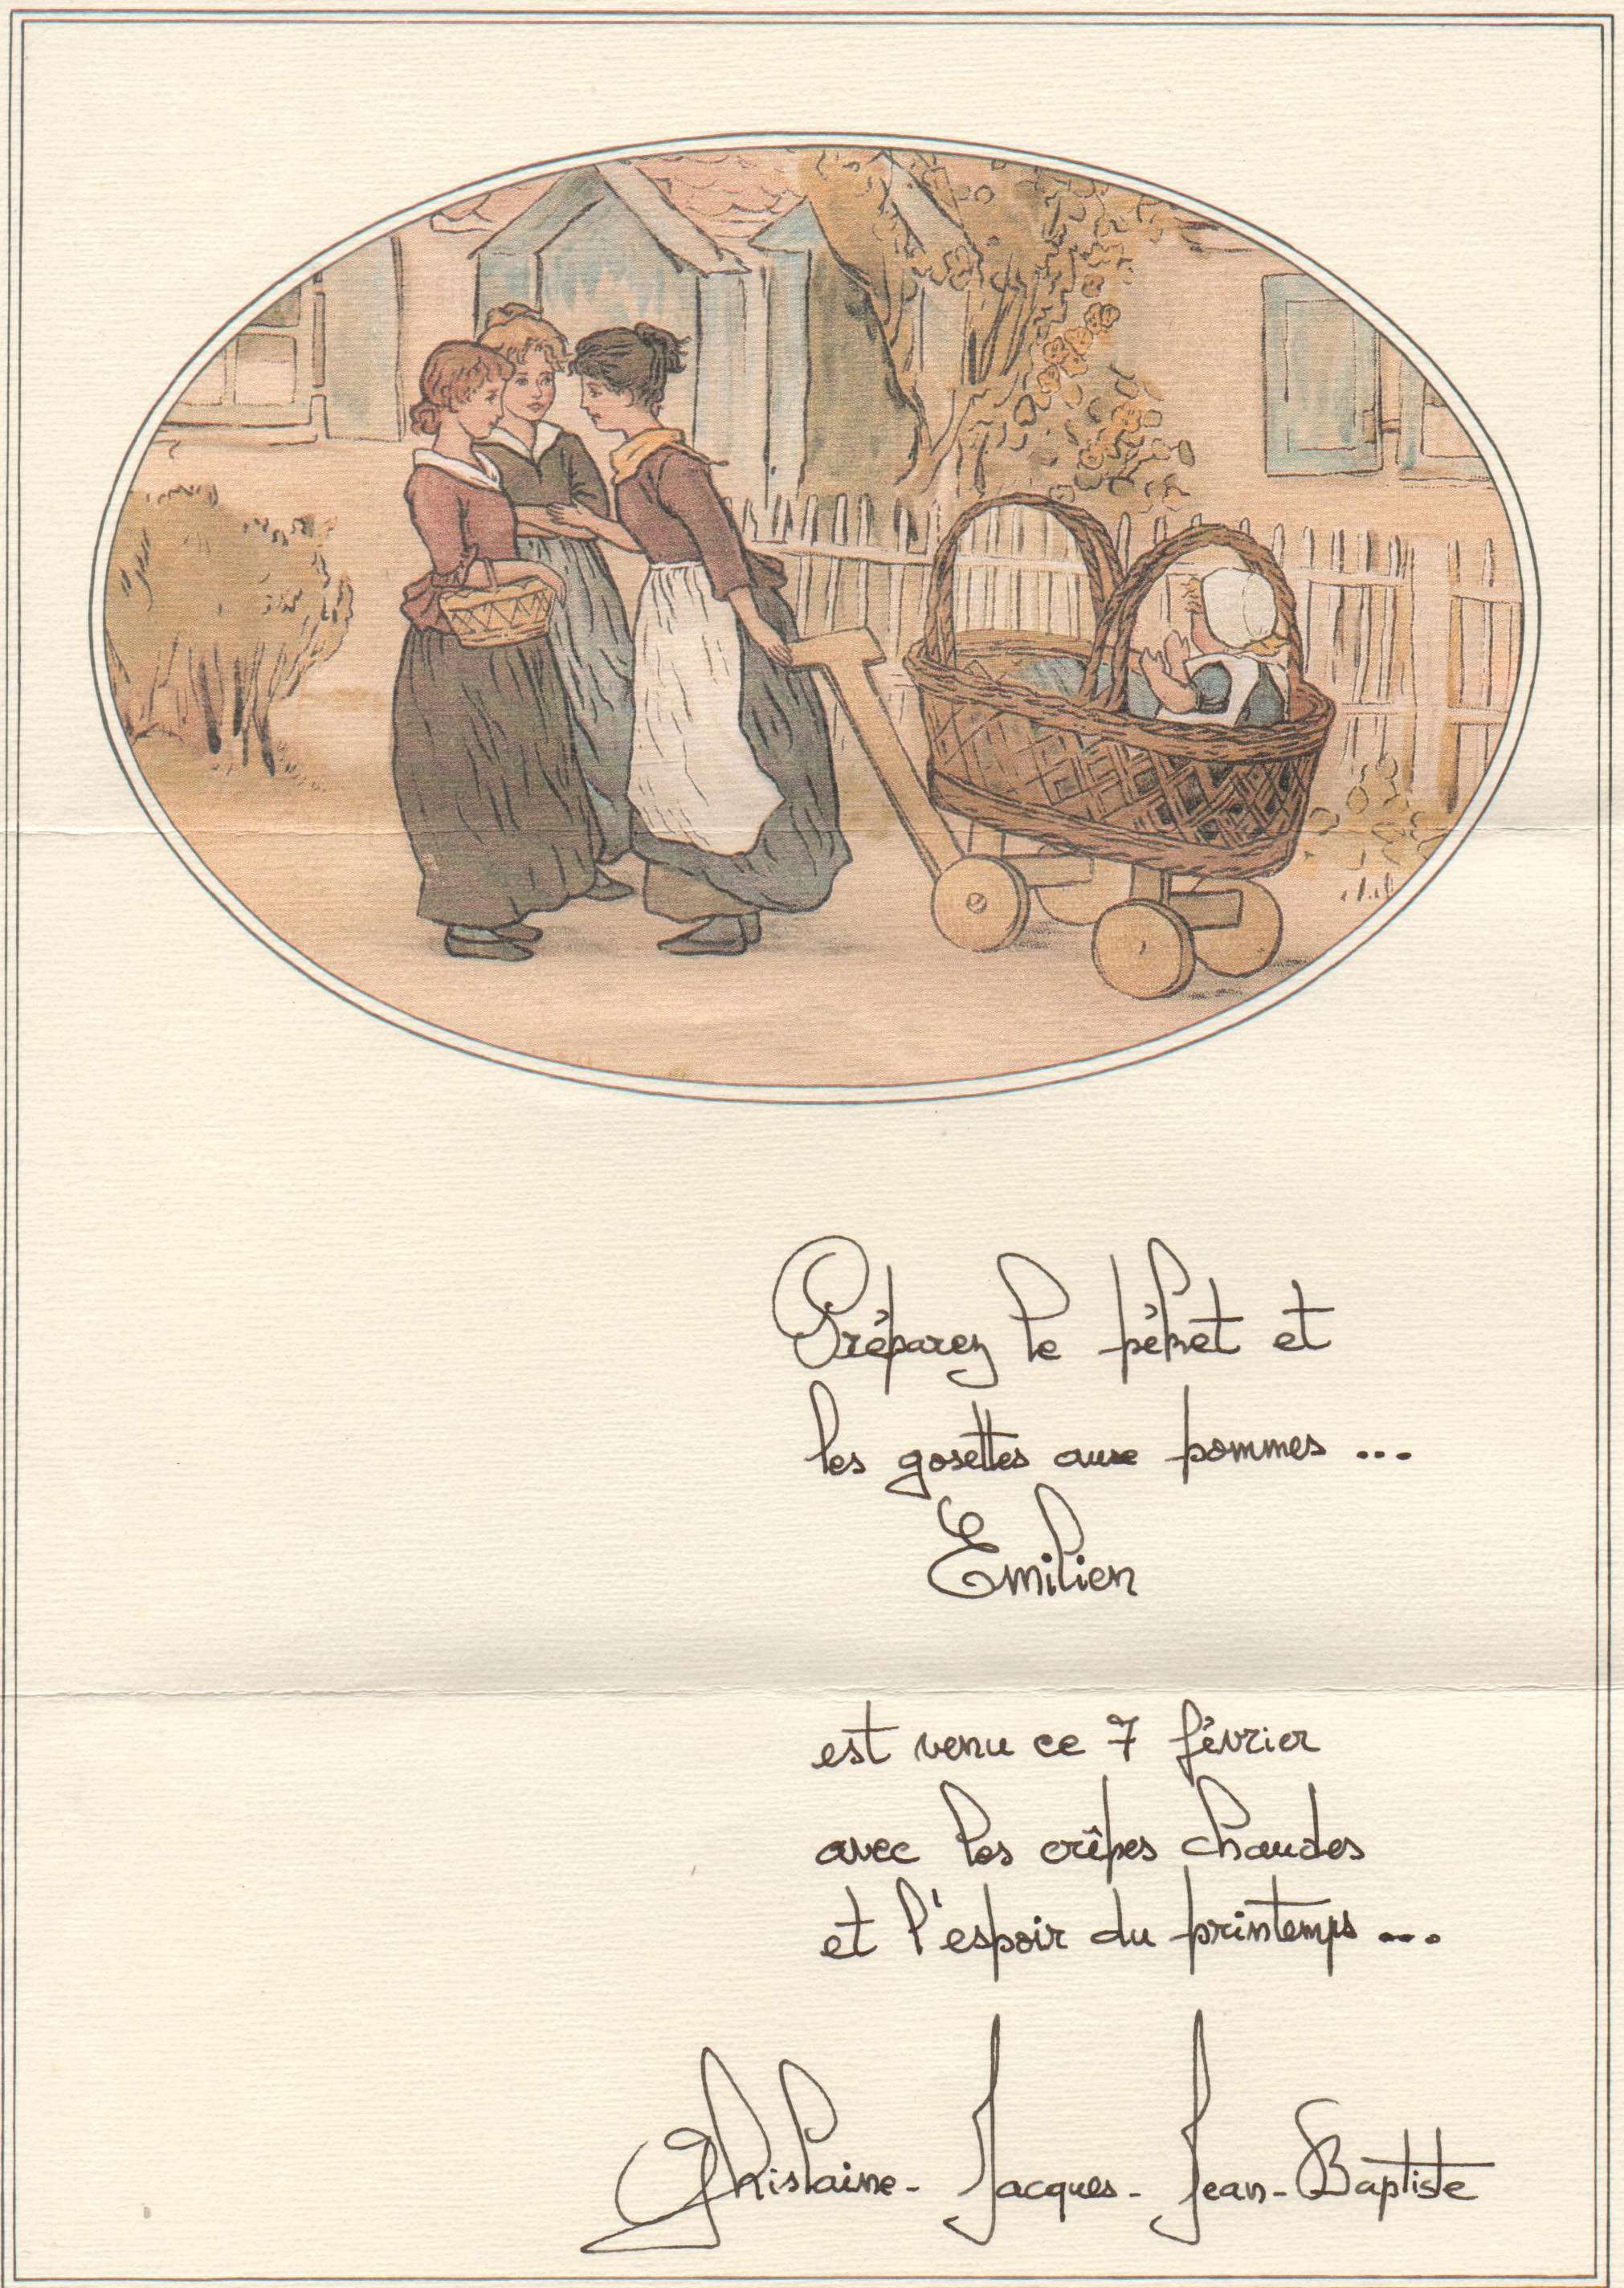 Préparez le pèket et
les gosettes aux pommes ...
Emilien
est venu ce 7 février
avec les crêpes chaudes
et l'espoir du printemps ...
Ghislaine - Jacques - Jean-Baptiste